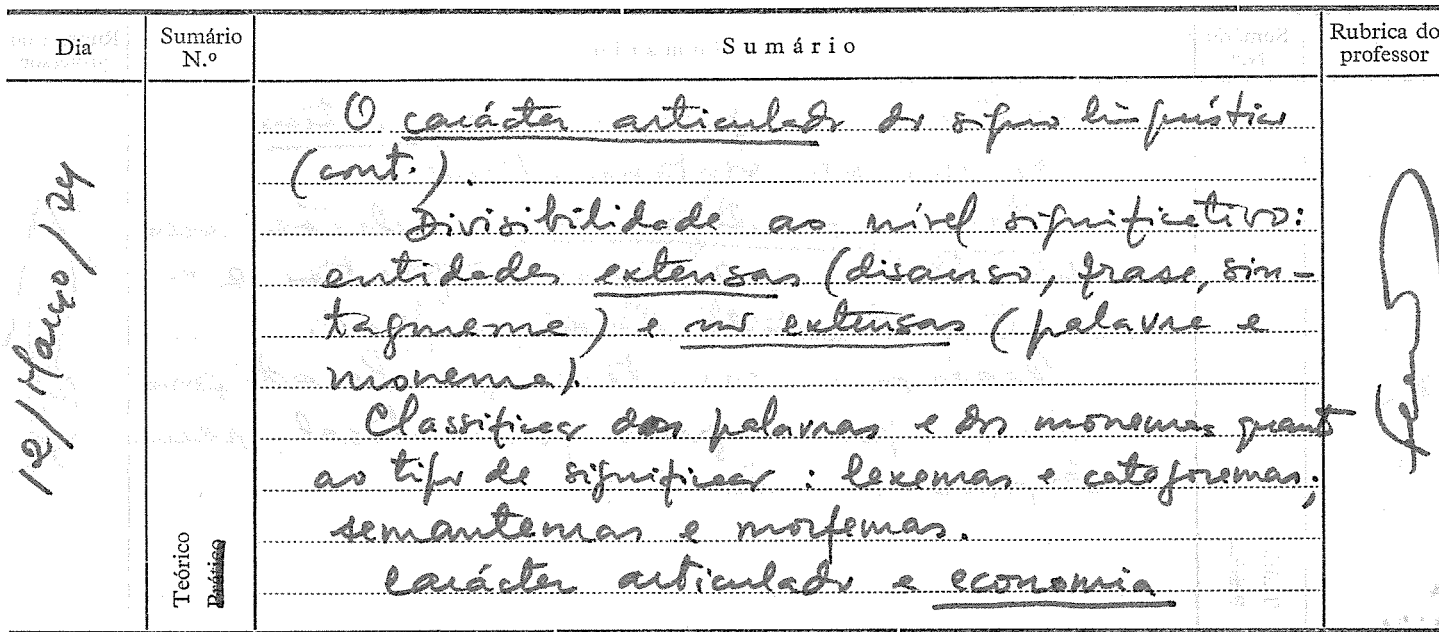 Dia
Sumário
N.º
Sumário
Rubrica do
professor
12/Março/74
Teórico
Prático
O carácter articulado do signo linguístico
(cont.).
Divisibilidade ao nível significativo:
entidades extensas (discurso, frase, sin-
tagmema) e não extensas (palavra e
monema).
Classificação das palavras e dos monemas quanto
ao tipo de significação: lexemas e categoremas;
semantemas e morfemas.
Carácter articulado e economia